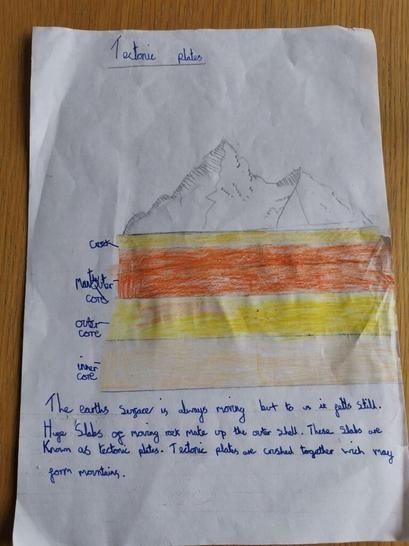 Tectonic plates
core
outer
core
inner
core
The earths surface is always moving but to us it fells still.
Huge Slabs of moving rock make up the outer shell. These Slabs are
Known as tectonic plates. Tectonic plates are crushed together wich may
form mountains.